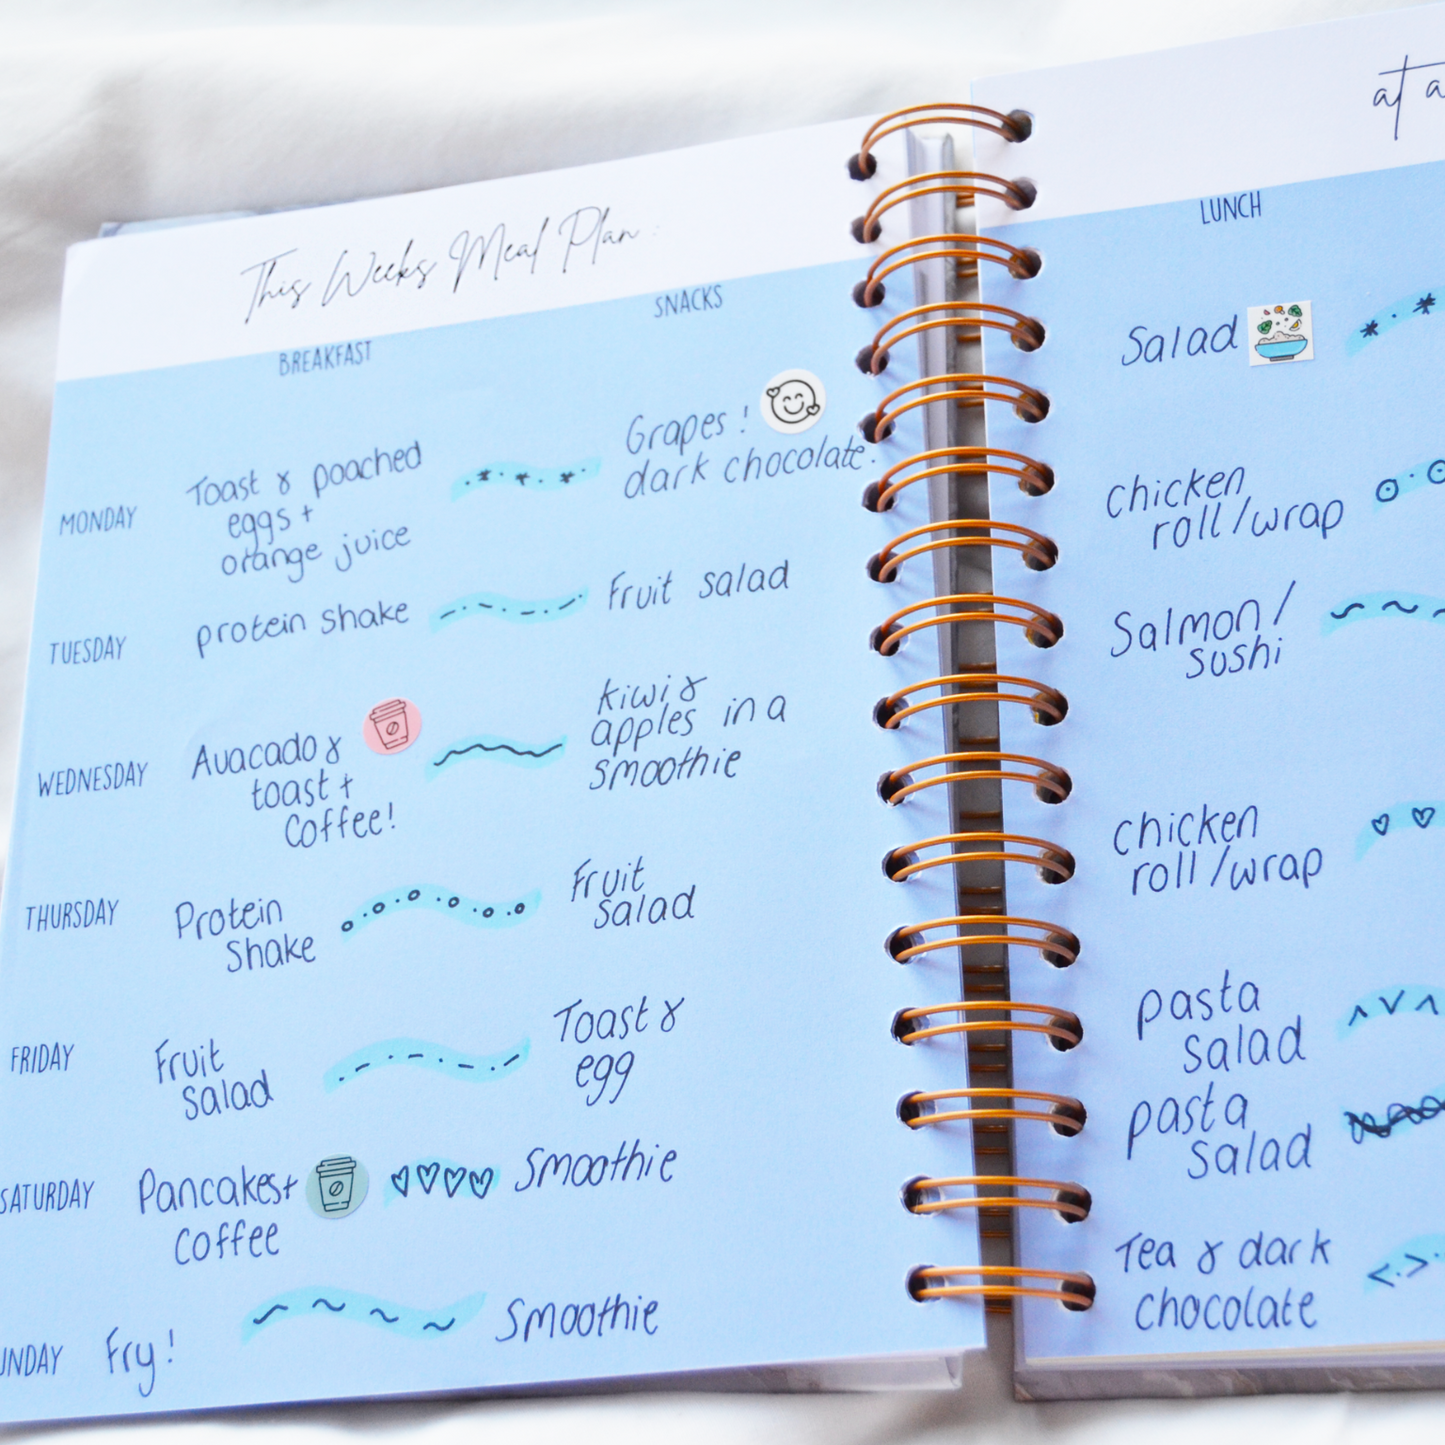 This Weeks Meal Plan:
BREAKFAST
SNACKS
MONDAY
Toast & poached
eggs +
orange juice
Grapes!
dark chocolate.
TUESDAY
protein shake
Fruit salad
WEDNESDAY
Avacado &
toast +
Coffee!
kiwi &
apples in a
smoothie
THURSDAY
Protein
Shake
Fruit
Salad
FRIDAY
Fruit
Salad
Toast &
egg
SATURDAY
Pancakes+
Coffee
Smoothie
UNDAY
Fry!
Smoothie
at a
LUNCH
Salad
chicken
roll/wrap
Salmon/
sushi
chicken
roll/wrap
pasta
salad
pasta
salad
Tea & dark
chocolate